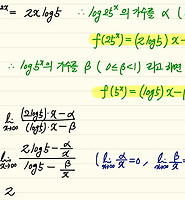 2x = 2x log5 ∴ log25^x의 가수를 α (
f(25^x) = (2log5)x -
∴ log5^x의 가수를 β (0≤β<1) 라고 하면
f(5^x) = (log5)x - β
lim x→∞ (2log5)·x - α / (log5)·x - β
lim x→∞ 2log5 - α/x / log5 - β/x ( lim x→∞ α/x = 0, lim x→∞ β/x =
2